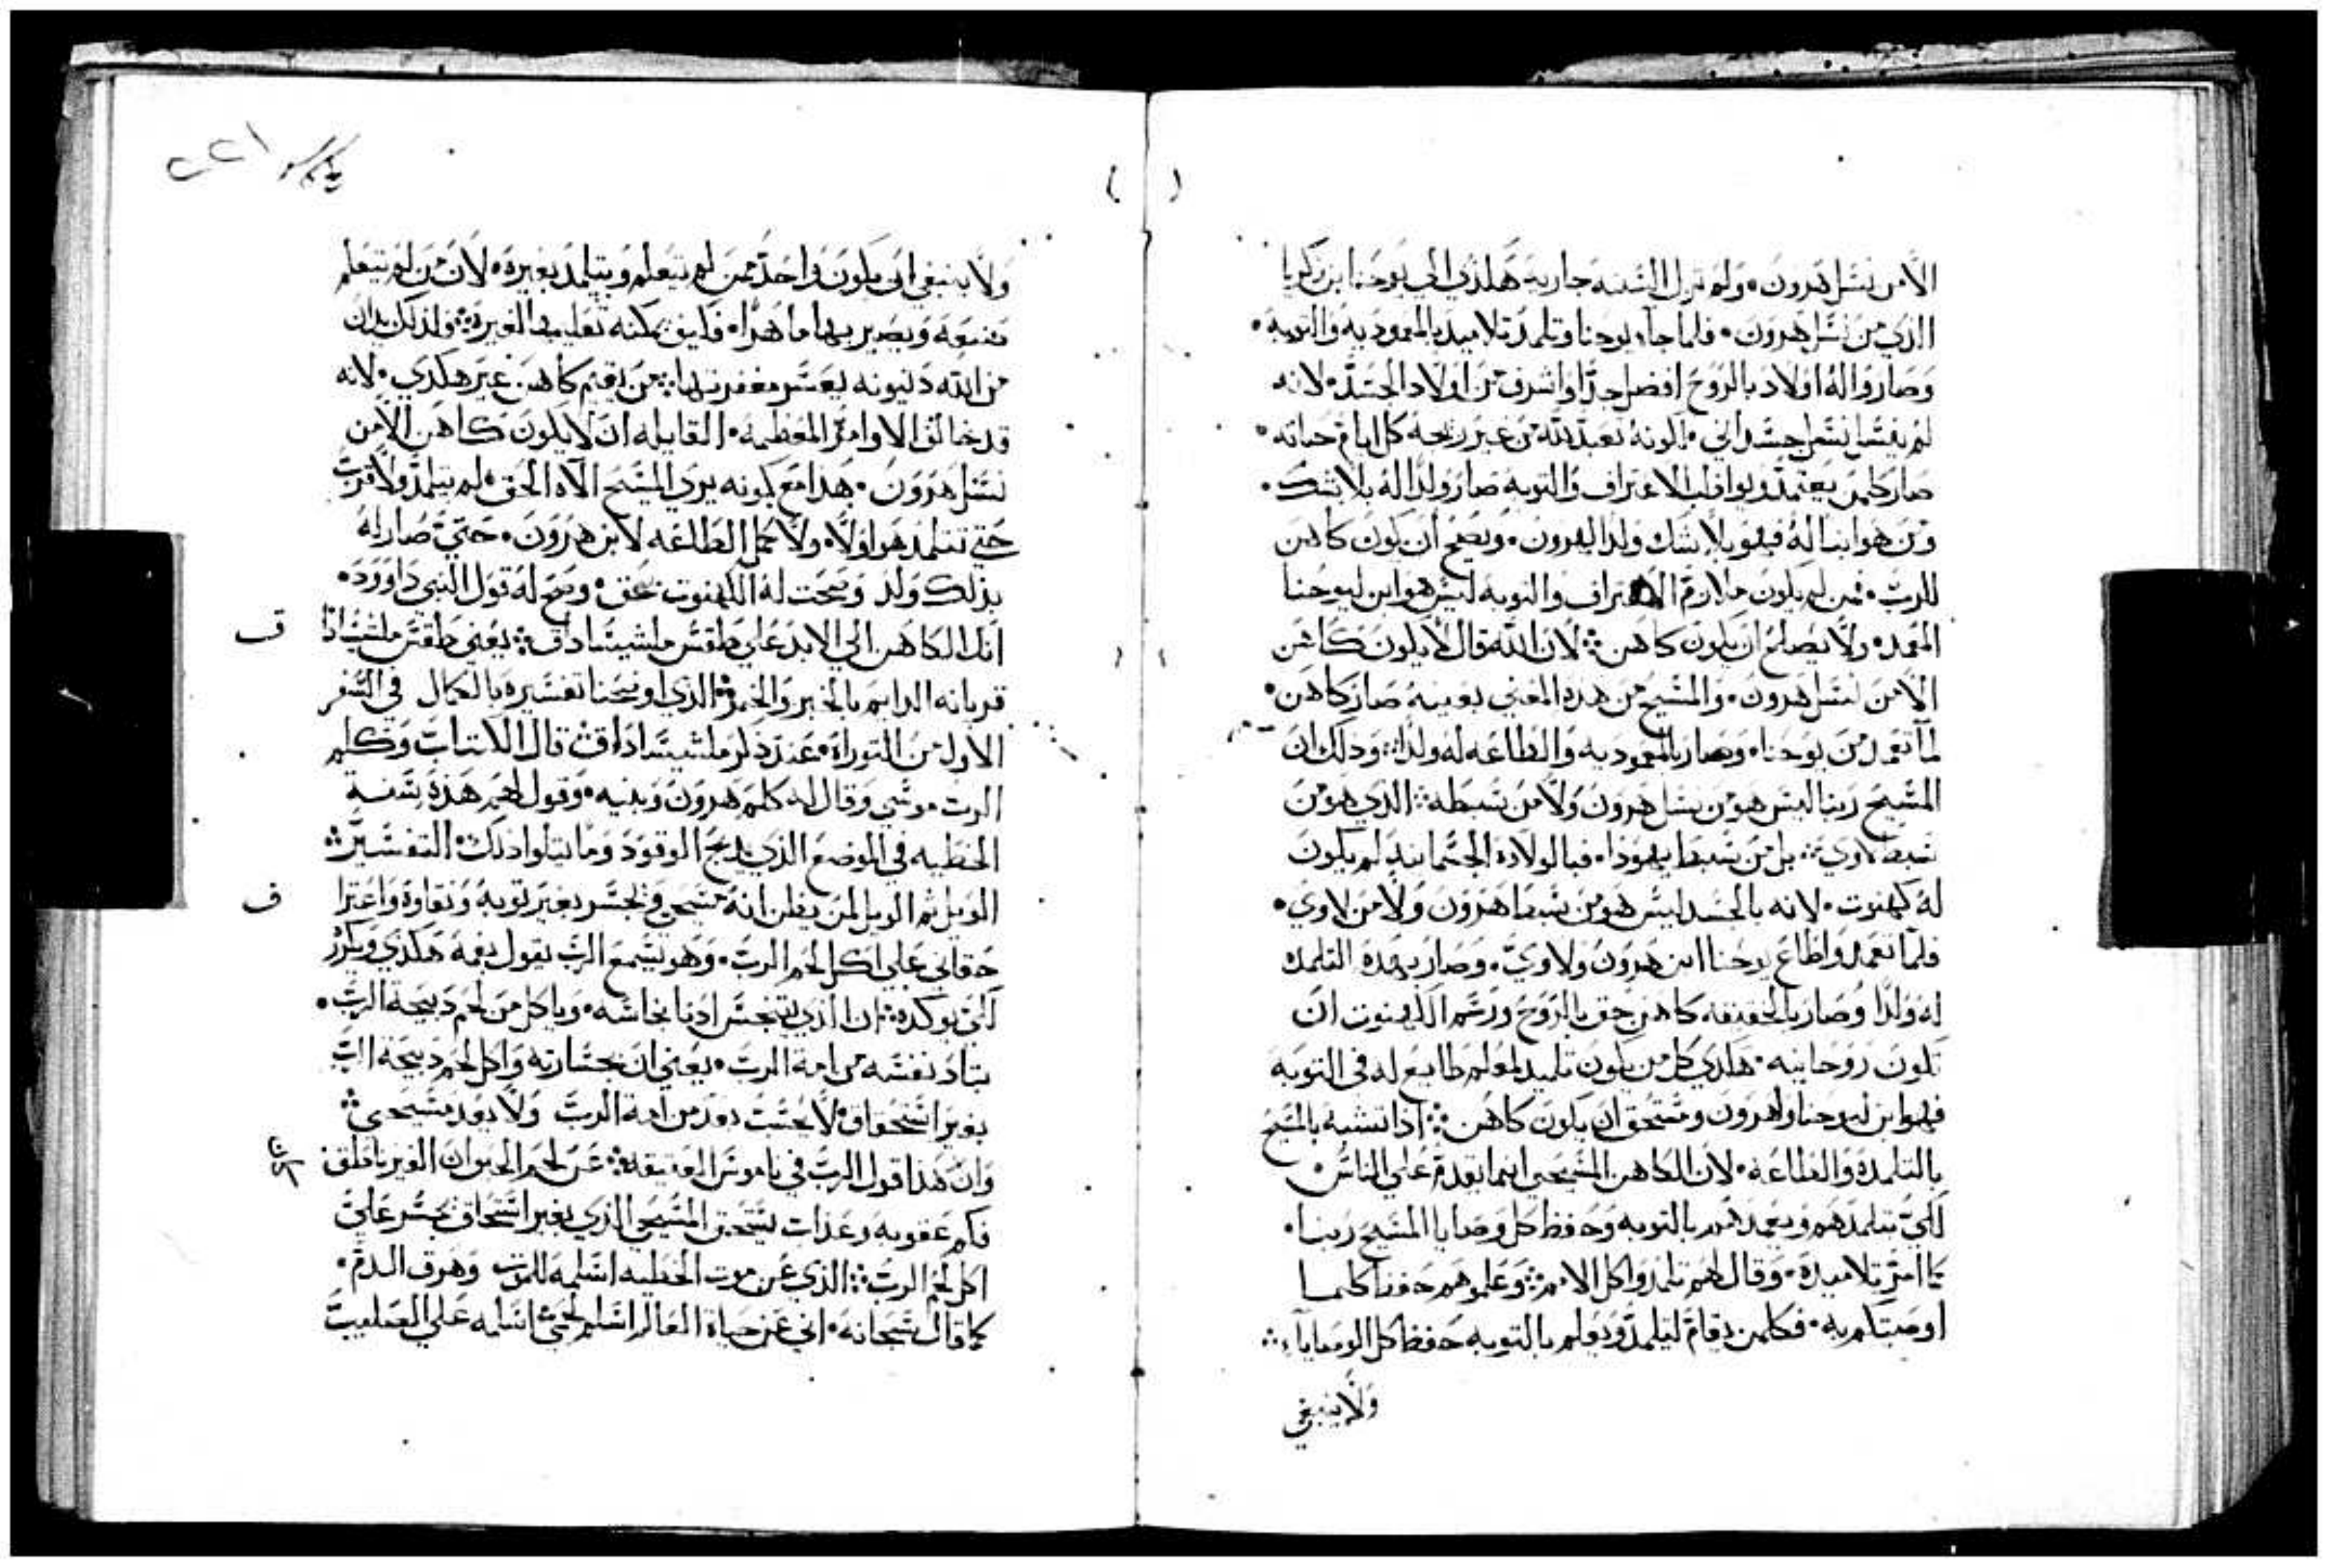 الا من نسل هرون • ولم تزل السنه جاريه هكذي الي يوحنا ابن زكريا
الذي من نسل هرون • فلما جاء يوحنا وتلمد تلاميد بالمعموديه والتوبه •
وصاروا له اولاد بالروح افضل جدا واشرف من اولاد الجسد • لانه
لم ينسا نسل جسداني • لكونه تعبد لله من غير زيجه كل ايام حياته •
صار كلمن يعتمد ويواظب الاعتراف والتوبه صار ولدا له بلا شك •
ومن هو ابنا له فهو بلا شك ولدا لهرون • ويصح ان يكون كاهن
للرب • فمن لم يكون ملازم الاعتراف والتوبه ليس هو ابن ليوحنا
المعمد • ولا يصلح ان يكون كاهن ፨ لان الله قال لا يكون كاهن
الا من نسل هرون • والمسيح من هده المعني بعينه صار كاهن •
لما تعمد من يوحنا • وصار بالمعموديه والطاعه له ولدا ፨ ودلك ان
المسيح ربنا ليس هو من نسل هرون ولا من سبطه ፨ الدي هو من
سبط لاوي ፨ بل من سبط يهودا • فبالولاده الجسمانيه لم يكون
له كهنوت • لانه بالجسد ليس هو من سبط هرون ولا من لاوي •
فلما تعمد واطاع يوحنا ابن هرون ولاوي • وصار بهده التلمده
له ولدا وصار بالحقيقه كاهن حق بالروح ورسم الكهنوت ان
تكون روحانيه • هكدي كل من يكون تلميد لمعلم طايع له في التوبه
فهو ابن ليوحنا ولهرون ومستحق ان يكون كاهن ፨ ادا تشبه بالمسيح
بالتلمده والطاعه • لان الكاهن المسيحي انما يقدم علي الناس •
لكي يتلمدهم ويعمدهم بالتوبه وحفظ كل وصايا المسيح ربنا •
كما امر تلاميده • وقال لهم تلمدوا كل الامم ፨ وعلموهم حفظ كلما
اوصيتكم به • فكلمن يقام ليتلمد ويعلم بالتوبه حفظ كل الوصايا ፨
ولا ينبغي
٢٢١
ولا ينبغي ان يكون واحد ممن لم يتعلم ويتلمد بغيره • لان من لم يتعلم
صنعه ويصير بها ماهرا • فكيف يمكنه تعليمها لغيره ፨ ولدلك يدان
من الله دينونه يعسر مغفرتها ፨ من يقيم كاهن غير هكدي • لانه
قد خالف الاوامر المعظمه • القايله ان لا يكون كاهن الا من
نسل هرون • هدا مع كونه يري المسيح الاله الحق • لم يتلمد ولا قرب
حتي تتلمد هو اولا • ولا كمل الطاعه لابن هرون • حتي صار له
بدلك ولد وصحت له الكهنوت بحق • وصح له قول النبي داوود •
انك الكاهن الي الابد علي طقس ملشيساداق ፨ يعني طقس ملشيسادا
ق
قربانه الدايم بالخبز والخمر • الذي اوضحنا تفسيره بالكمال في السفر
الاول من التوراة • عند ذكر ملشيساداق ፨ قال الكتاب وكلم
الرب موسي وقال له كلم هرون وبنيه • وقول لهم هذه سنة
الخطيه في الموضع الذي يدبح الوقود وما يتلوا ذلك • التفسير ፨
الويل ثم الويل لمن يظن انه مسيحي ويجسر بغير توبه ونقاوة واعترا
ف
حقاني علي اكل لحم الرب • وهو يسمع الرب يقول بفمه هكذي ويكرر
لكي يوكده ፨ ان الذي يتنجس ادنا نجاسه • وياكل من لحم دبيحة الرب •
تباد نفسه من امة الرب • يعني ان بجسارته واكل لحم دبيحة الرب
بغير استحقاق • لا يحسب يعد من امة الرب ولا يعد مسيحي ፨
وان هذا قول الرب في ناموس العتيقه ፨ عن لحم الحيوان الغير ناطق
فكم عقوبه وعذاب يستحق المسيحي الذي بغير استحقاق يجسر علي
اكل لحم الرب ፨ الذي عن موت الخطيه اسلمه للموت وهرق الدم •
كما قال سبحانه • اني عن حياة العالم اسلم لحمي اسلمه علي الصليب